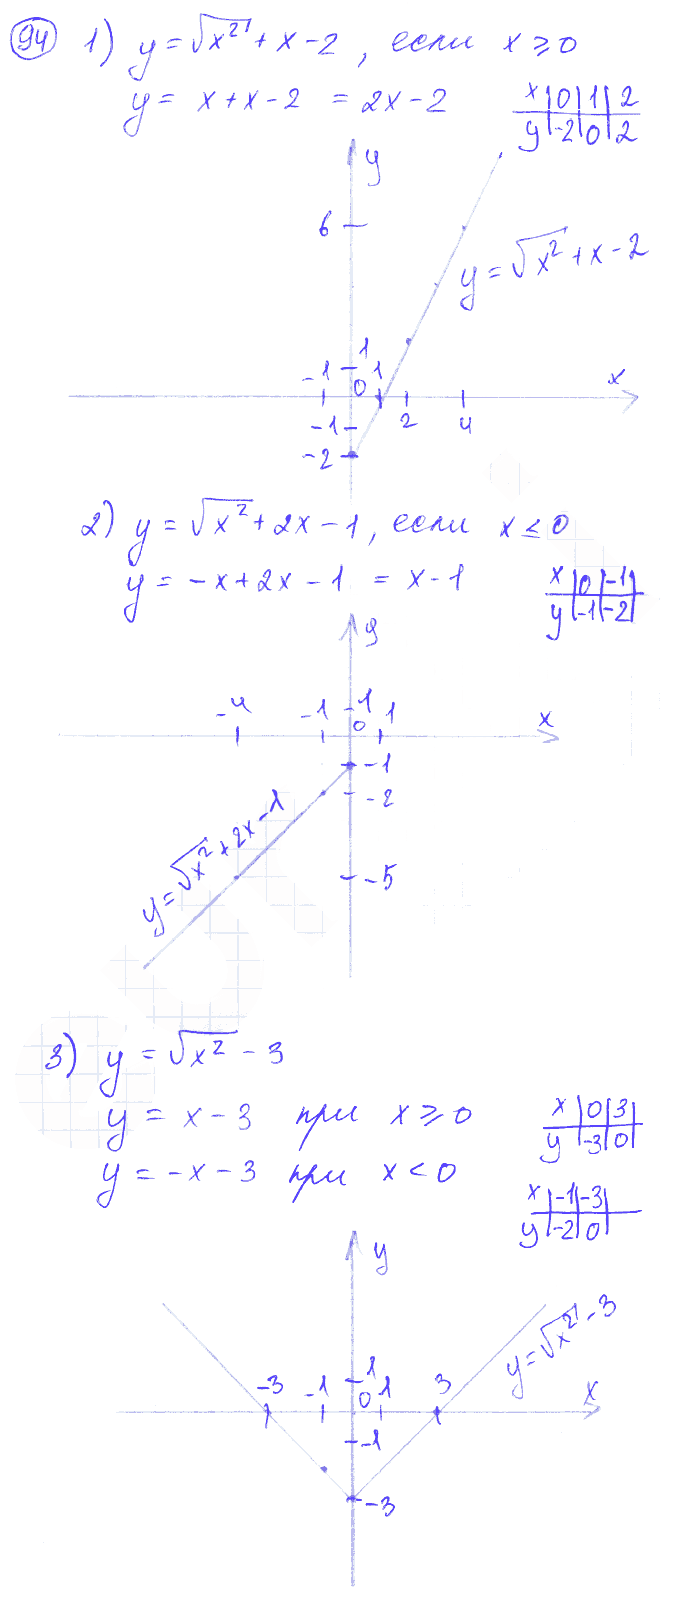 94 1) y = √x² + x - 2, если x ≥ 0
y = x + x - 2 = 2x - 2
x | 0 | 1 | 2
y | -2 | 0 | 2
y
6
y = √x² + x - 2
1
-1 0 1 x
-1 2 4
-2
2) y = √x² + 2x - 1, если x ≤ 0
y = -x + 2x - 1 = x - 1
x | 0 | -1 |
y | -1 | -2 |
y
-4 -1 1 0 1 x
-1
-2
y = √x² + 2x - 1
-5
3) y = √x² - 3
y = x - 3 при x ≥ 0
x | 0 | 3 |
y | -3 | 0 |
y = -x - 3 при x < 0
x | -1 | -3 |
y | -2 | 0 |
y
y = √x² - 3
-3 -1 1 0 1 3 x
-1
-3